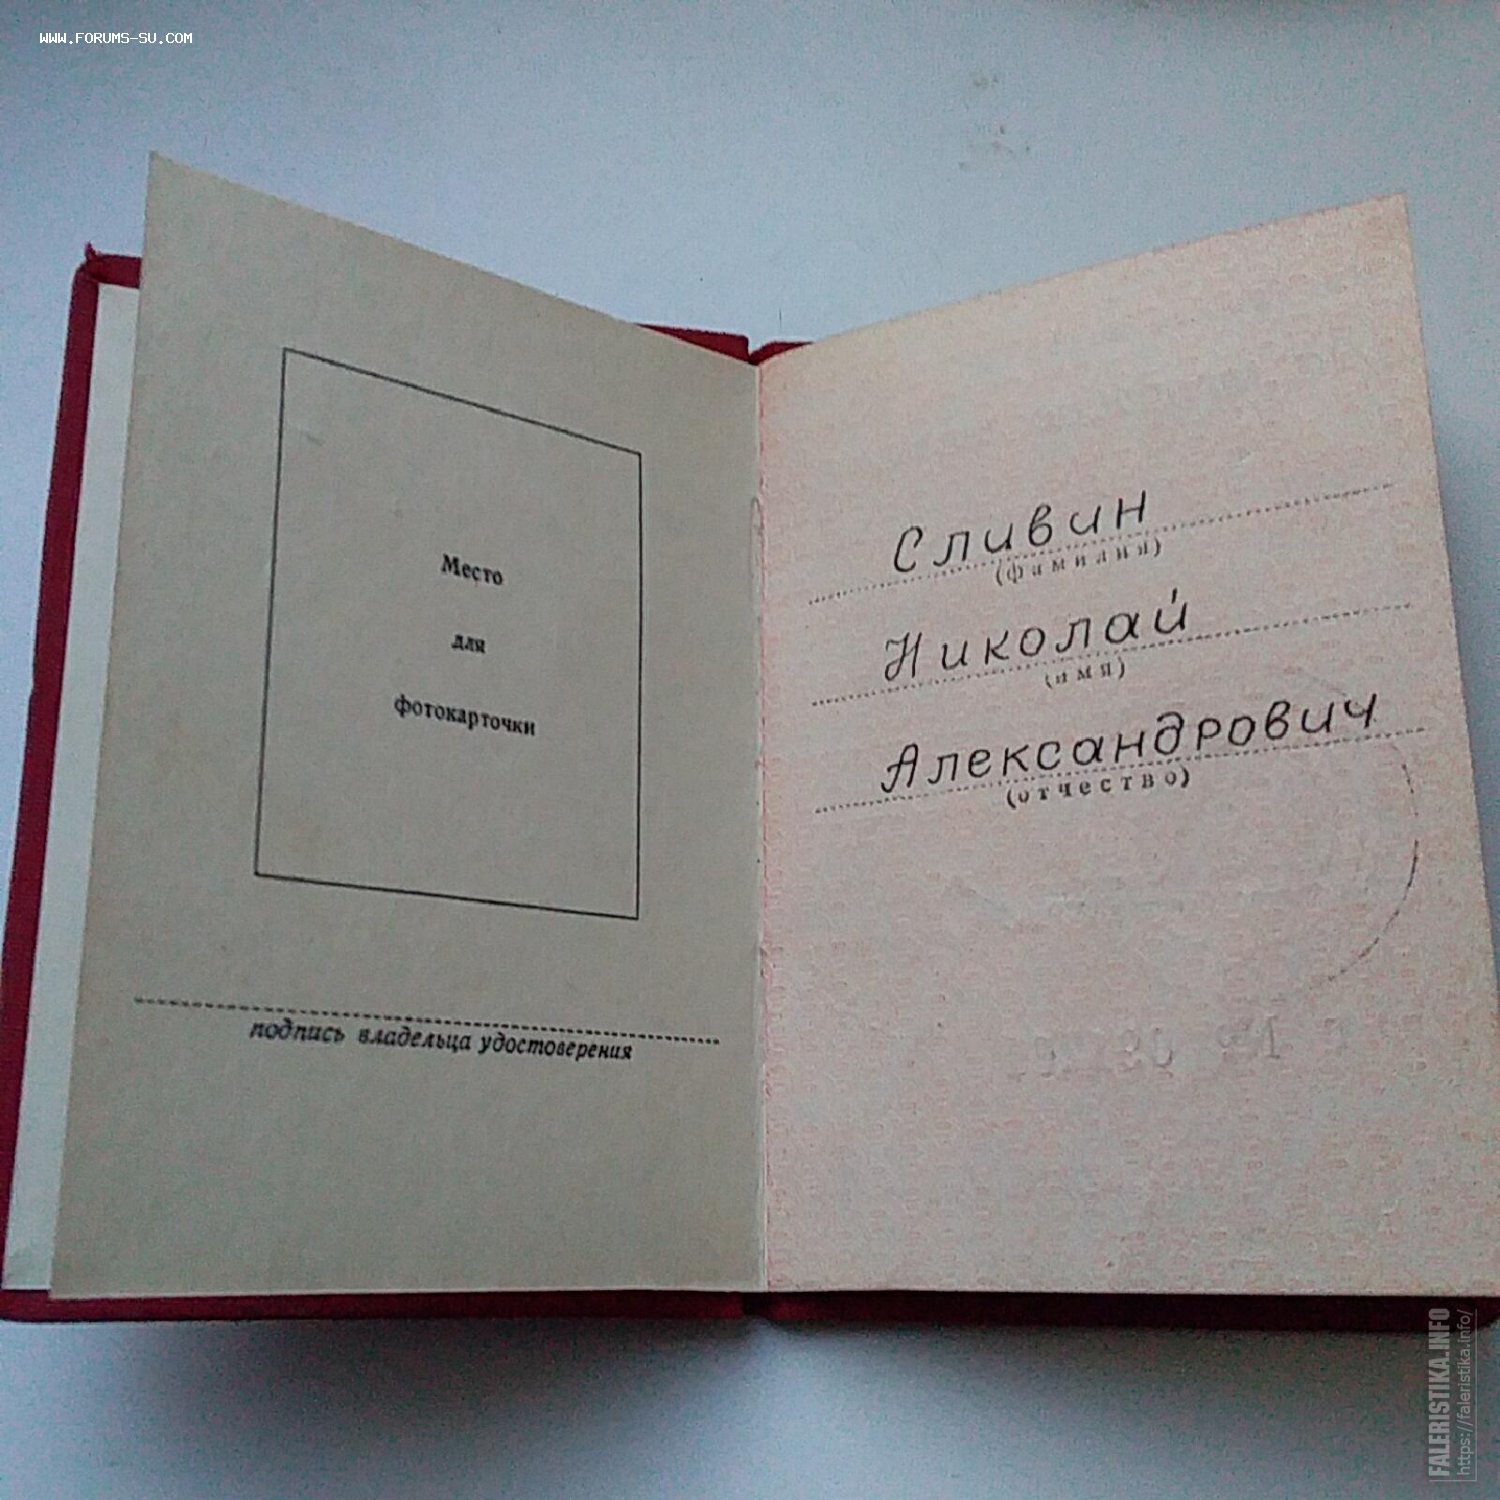 WWW.FORUMS-SU.COM
Место
для
фотокарточки
подпись владельца удостоверения
Сливин
(фамилия)
Николай
(имя)
Александрович
(отчество)
FALERISTIKA.INFO
https://faleristika.info/